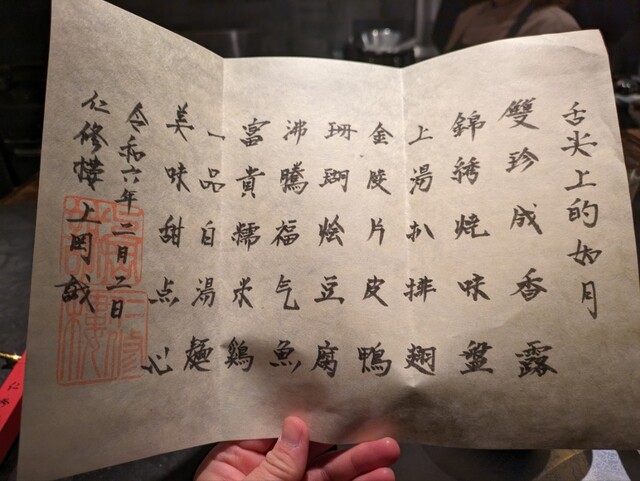 舌尖上的如月
雙珍成香露
錦綉焼味盤
上湯扒排翅
金陵片皮鴨
珊瑚烩豆腐
沸騰福气魚
富貴糯米鶏
一品白湯麺
美味甜点心
令和六年二月二日
仁修樓上岡誠